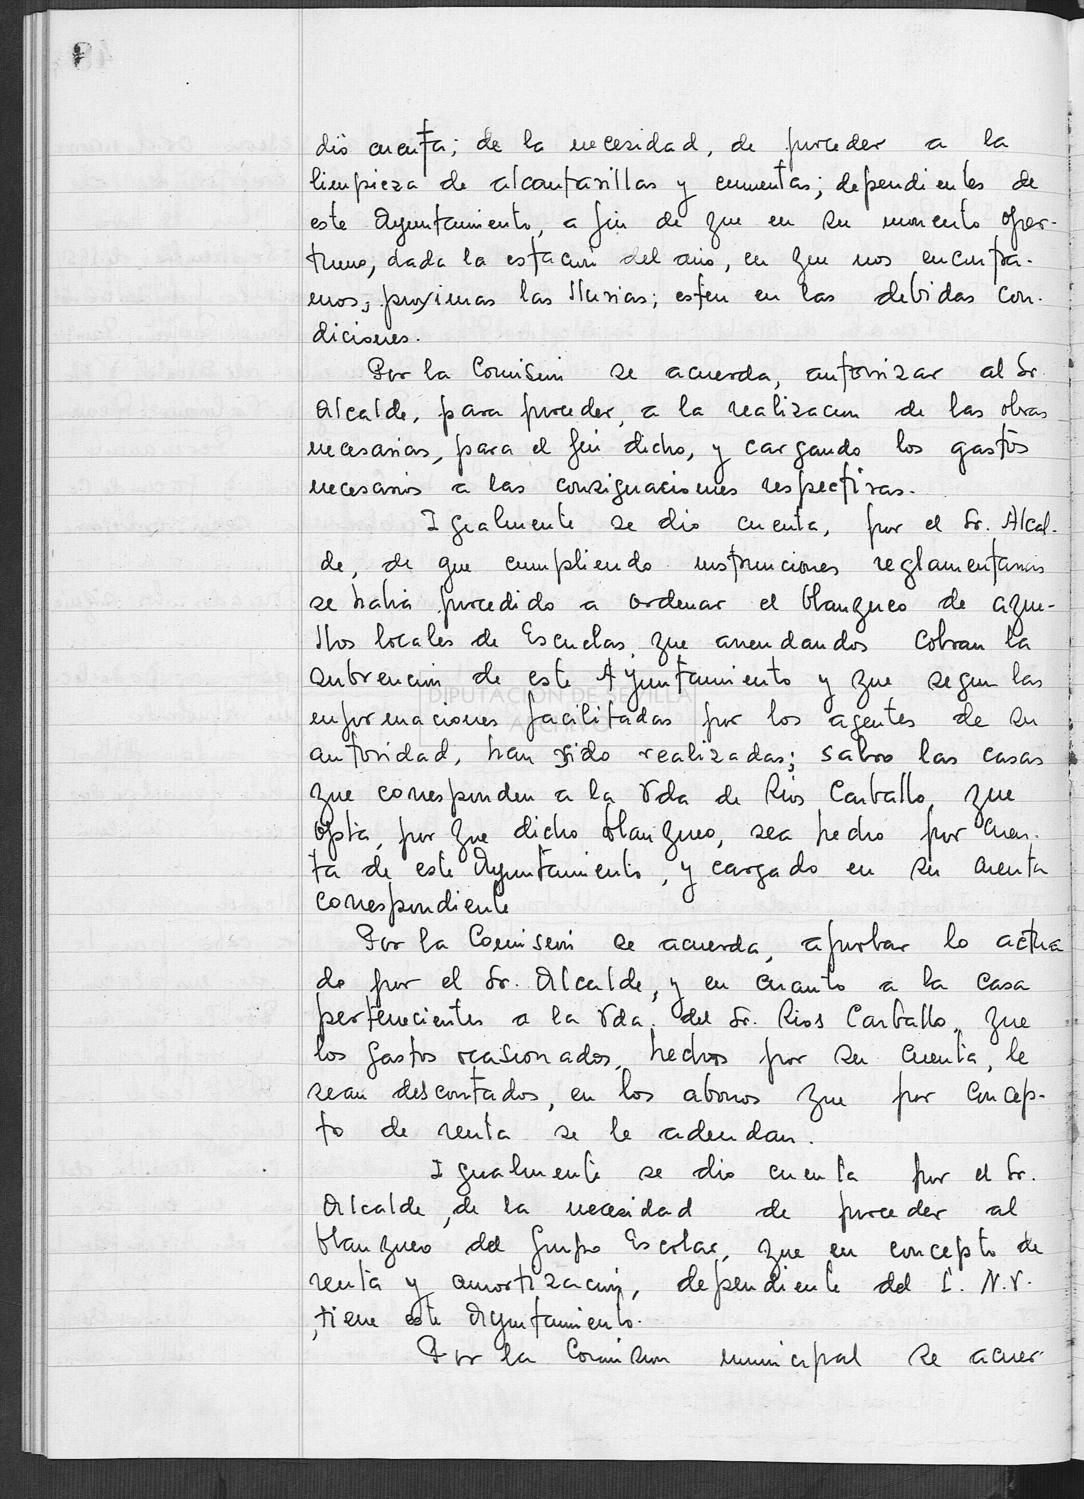 dió cuenta; de la necesidad, de proceder a la
limpieza de alcantarillas y cunetas; dependientes de
este Ayuntamiento, a fin de que en su momento opor-
tuno, dada la estación del año, en que nos encontra-
mos, proximas las lluvias; esten en las debidas con-
diciones.
Por la Comisión se acuerda, autorizar al Sr.
Alcalde, para proceder, a la realizacion de las obras
necesarias, para el fin dicho, y cargando los gastos
necesarios a las consignaciones respectivas.
Igualmente se dio cuenta, por el Sr. Alcal-
de, de que cumpliendo instrucciones reglamentarias
se habia procedido a ordenar el blanqueo de aque-
llos locales de Escuelas, que arrendandos cobran la
subvención de este Ayuntamiento y que segun las
informaciones facilitadas por los agentes de su
autoridad, han sido realizadas; salvo las casas
que corresponden a la Vda de Rios Carballo, que
opta, por que dicho blanqueo, sea hecho por cuen-
ta de este Ayuntamiento, y cargado en su cuenta
correspondiente
DIPUTACIÓN DE SEVILLA
ARCHIVO
Por la Comisión se acuerda, aprobar lo actua
do por el Sr. Alcalde, y en cuanto a la casa
pertenecientes a la Vda. del Sr. Rios Carballo, que
los gastos ocasionados, hechos por su cuenta, le
sean descontados, en los abonos que por concep-
to de renta se le adeudan.
Igualmente se dio cuenta por el Sr.
Alcalde, de la necesidad de proceder al
blanqueo del Grupo Escolar, que en concepto de
renta y amortización, dependiente del I. N. V.
tiene este Ayuntamiento.
Por la Comision municipal se acuer-